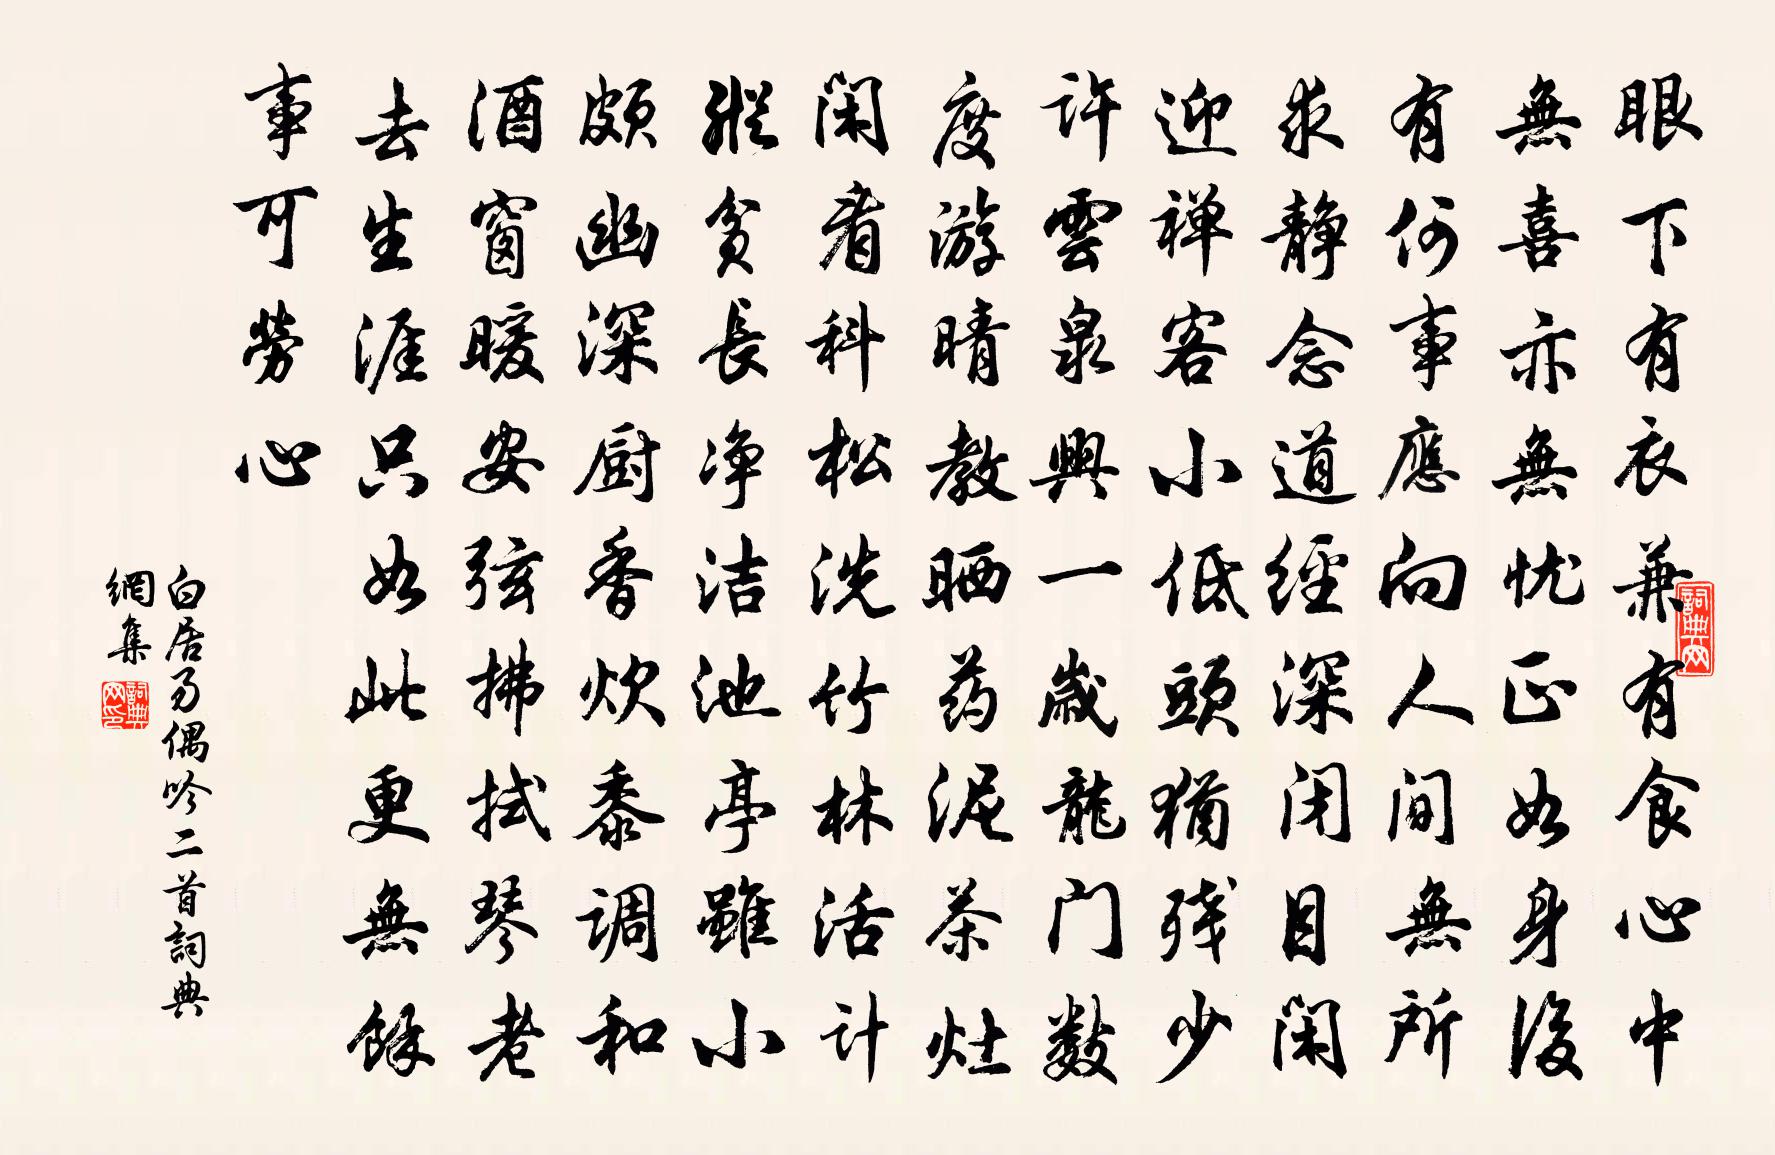 眼下有衣兼有食心中
無喜亦無忧正如身後
有何事應向人间無所
求静念道經深闭目闲
迎禅客小低頭犹残少
许雲泉興一歲龍门數
度游晴教晒药泥茶灶
闲看科松洗竹林活计
縱贫長净洁池亭雖小
颇幽深厨香炊黍调和
酒窗暖安弦拂拭琴老
去生涯只如此更無餘
事可勞心
白居易偶吟二首詞典
網集
詞典网
詞典网印